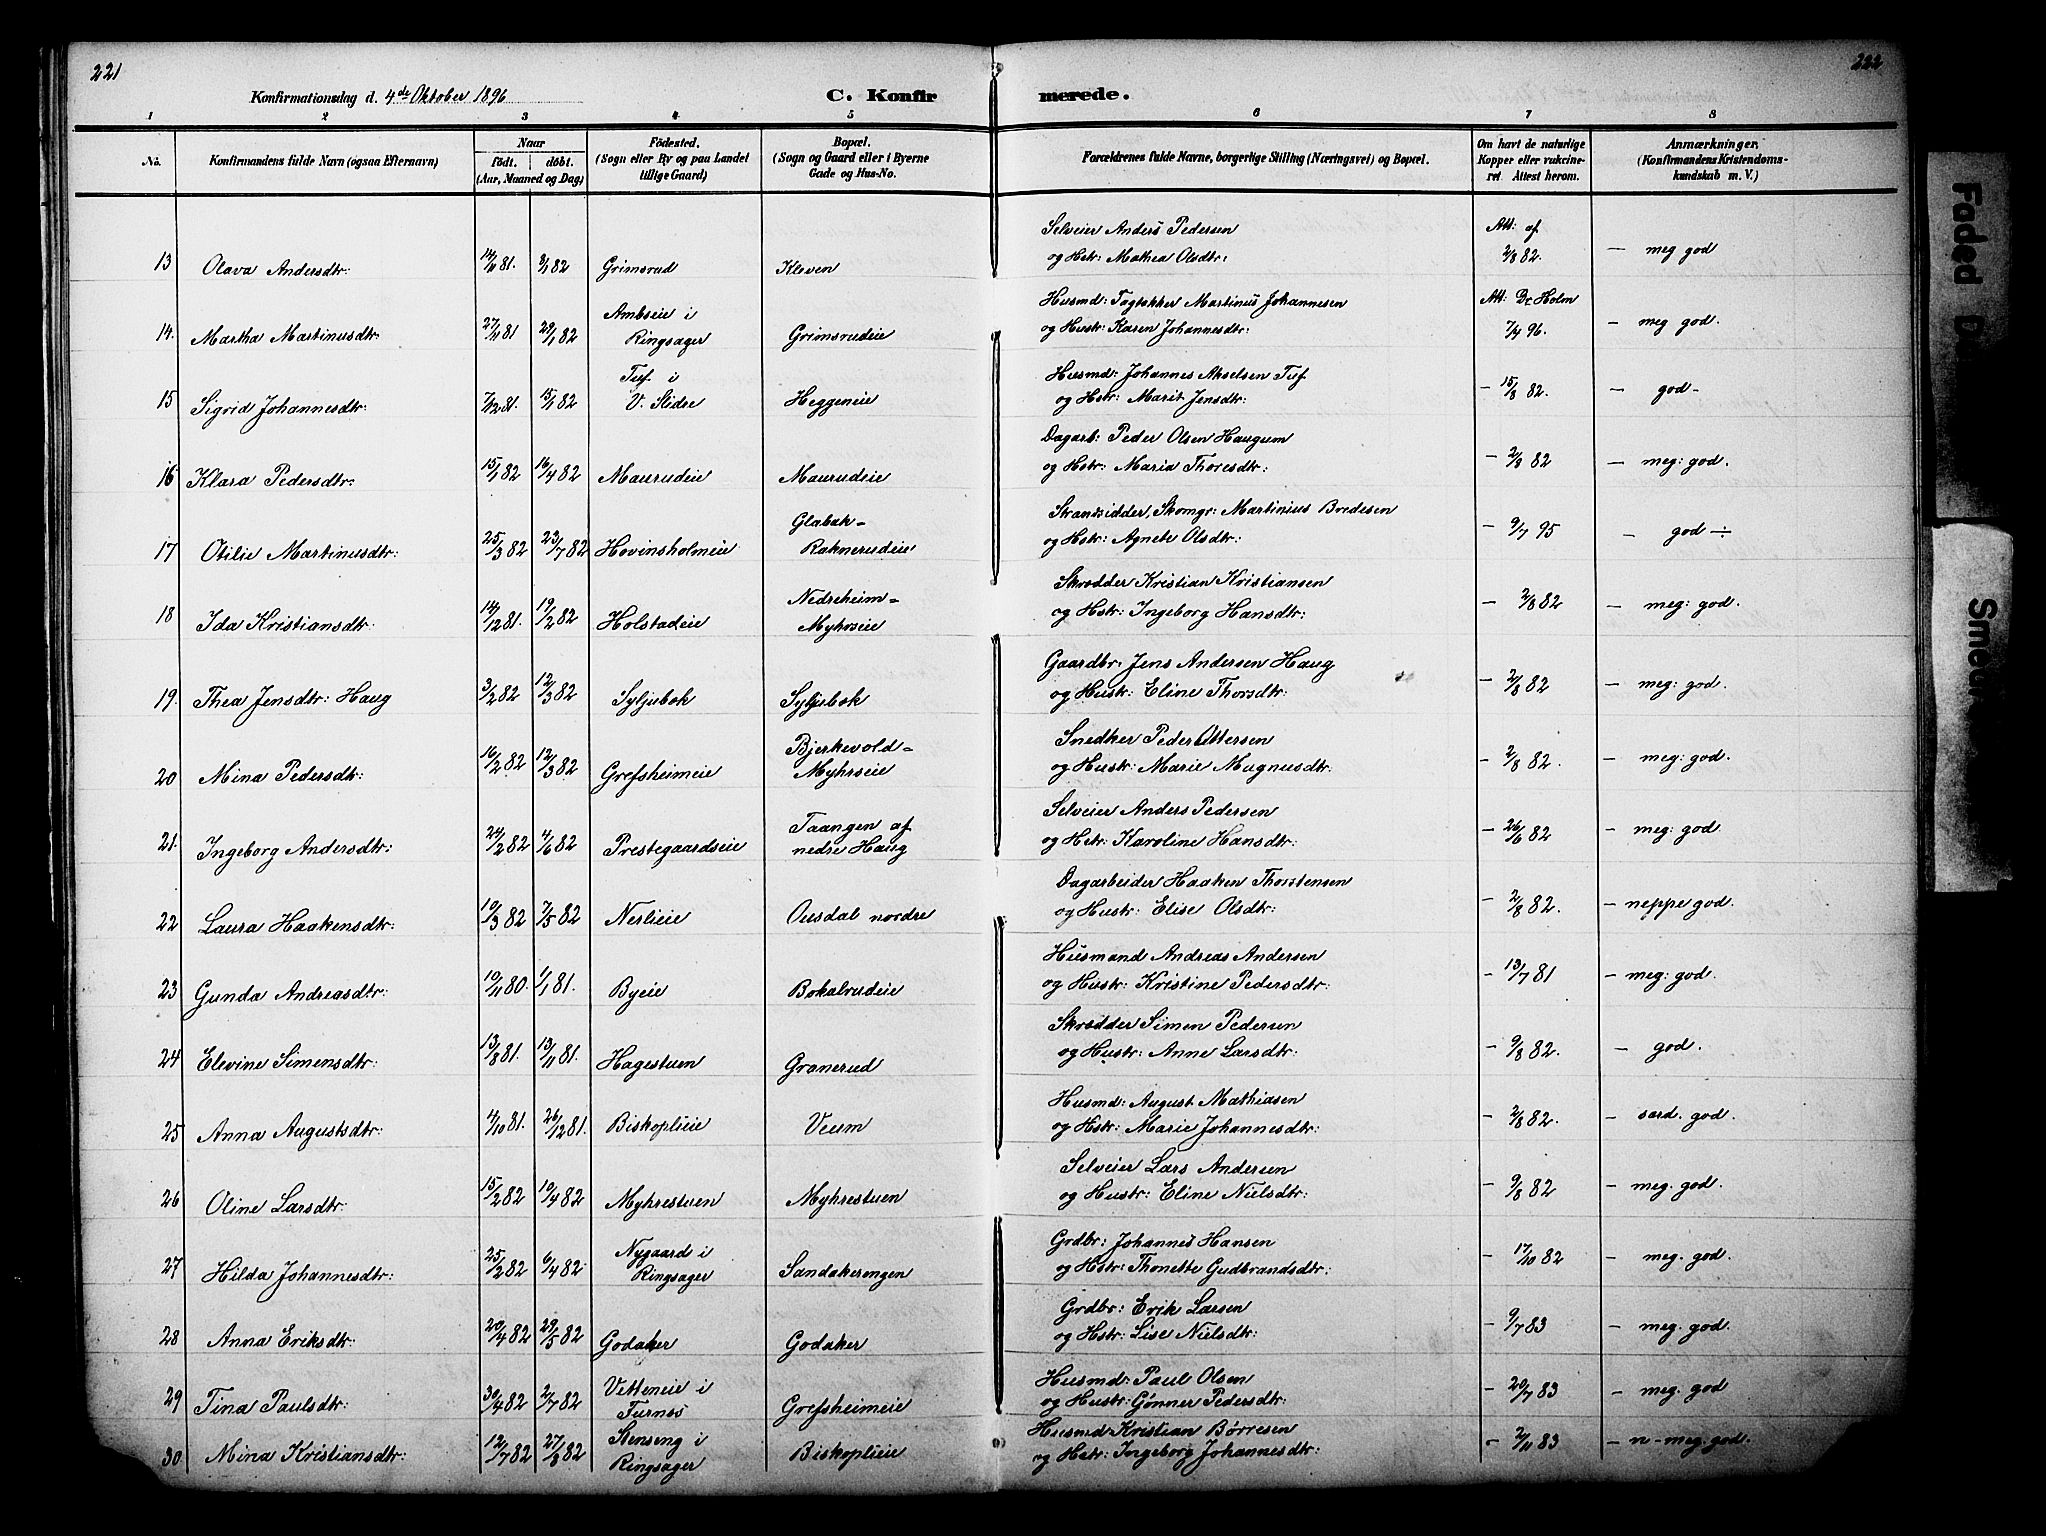 221
222
Konfirmationsdag d. 4de Oktober 1896
C. Konfir
merede.
1 2 3 4 5 6 7 8
No. Konfirmandens fulde Navn (ogsaa Efternavn)
Naar
født. døbt.
(Aar, Maaned og Dag)
Fødested.
(Sogn eller By og paa Landet
tillige Gaard)
Bopæl.
(Sogn og Gaard eller i Byerne
Gade og Hus-No.
Forældrenes fulde Navne, borgerlige Stilling (Næringsvei) og Bopæl.
Om havt de naturlige
Kopper eller vakcine-
ret Attest herom.
Anmærkninger.
(Konfirmandens Kristendoms-
kundskab m. V.)
Selveier Anders Pedersen Att: af
13 Olava Andersdtr: 14/11 81. 8/1 82 Grimsrud Kleven og Hstr: Mathea Olsdtr: 2/8 82. — meg god
Ambseie i Husmd: Fagtækker Martinus Johannesen Att: Dr Holm
14. Martha Martinusdtr: 27/11 81 29/1 82 Ringsager Grimsrudeie og Hustr: Karen Johannesdtr: 7/4 96. — meg god.
Tuf i Husmd: Johannes Akselsen Tuf
15 Sigrid Johannesdtr: 7/12 81. 15/1 82 V. Slidre Heggeneie og Hstr: Marit Jensdtr: — 15/8 82. — god —
Dagarb: Peder Olsen Haugum
16 Klara Pedersdtr: 15/1 82 16/4 82 Maurudeie Maurudeie og Hstr: Maria Thoresdtr: — 2/8 82 — meg: god.
Glabak- Strandsidder, Skomgr: Martinius Bredesen
17 Otilie Martinusdtr: 25/3 82 23/7 82 Hovinsholmeie Raknerudeie og Hstr: Agnete Olsdtr: — 9/7 95 — god ÷
Nedreheim- Skrædder Kristian Kristiansen
18 Ida Kristiansdtr: 14/12 81. 19/2 82 Holstadeie Myhrseie og Hstr: Ingeborg Hansdtr: — 2/8 82 — meg: god.
Gaardbr: Jens Andersen Haug
19. Thea Jensdtr: Haug 3/2 82 12/3 82 Syljubok Syljubok og Hustr: Eline Thorsdtr: — 2/8 82 — meg: god.
Bjerkevold- Snedker Peder Ottersen
20 Mina Pedersdtr: 16/2 82 12/3 82 Grefsheimeie Myhrseie og Hustr: Marie Magnusdtr: — 2/8 82. — meg: god.
Taangen af Selveier Anders Pedersen
21. Ingeborg Andersdtr: 24/2 82 4/6 82 Prestegaardseie nedre Haug og Hstr: Karoline Hansdtr: — 26/6 82 — meg: god.
Dagarbeider Haaken Thorstensen
22 Laura Haakensdtr: 19/3 82 7/5 82 Nerlieie Ousdal nordre og Hustr: Elise Olsdtr: — 2/8 82. — neppe god.
Husmand Andreas Andersen
23 Gunda Andreasdtr: 19/11 80 1/1 81. Byeie Bokalrudeie og Hustr: Kristine Pedersdtr: — 13/7 81 — meg: god.
Skrædder Simen Pedersen
24 Elevine Simensdtr: 13/8 81. 13/11 81. Hagestuen Granerud og Hustr: Anne Larsdtr: — 9/8 82. — god.
Husmd: August Mathiasen
25 Anna Augustsdtr: 4/10 81. 26/12 81. Biskoplieie Veum og Hstr: Marie Johannesdtr: — 2/8 82. — særd. god.
Selveier Lars Andersen
26 Oline Larsdtr: 15/2 82 10/4 82 Myhrestuen Myhrestuen og Hustr: Eline Nielsdtr: — 9/8 82 — meg. god.
Nygaard i Grdbr: Johannes Hansen
27 Hilda Johannesdtr: 25/2 82 6/4 82 Ringsager Sandakerengen og Hstr: Thonette Gudbrandsdtr: — 17/10 82 — meg. god
Grdbr: Erik Larsen
28 Anna Eriksdtr: 20/4 82 29/5 82 Godaker Godaker og Hstr: Lise Nielsdtr: — 9/7 83 — meg. god.
Vetteneie i Husmd: Paul Olsen
29 Tina Paulsdtr: 30/4 82 2/7 82 Furnes Grefsheimeie og Hustr: Gønner Pedersdtr: — 20/7 83 — meg. god
Stenseng i Husmd Kristian Børresen
30 Mina Kristiansdtr: 12/7 82 27/8 82 Ringsager Biskoplieie og Hstr: Ingeborg Johannesdtr: — 2/11 83 — n-meg. god.
Faded